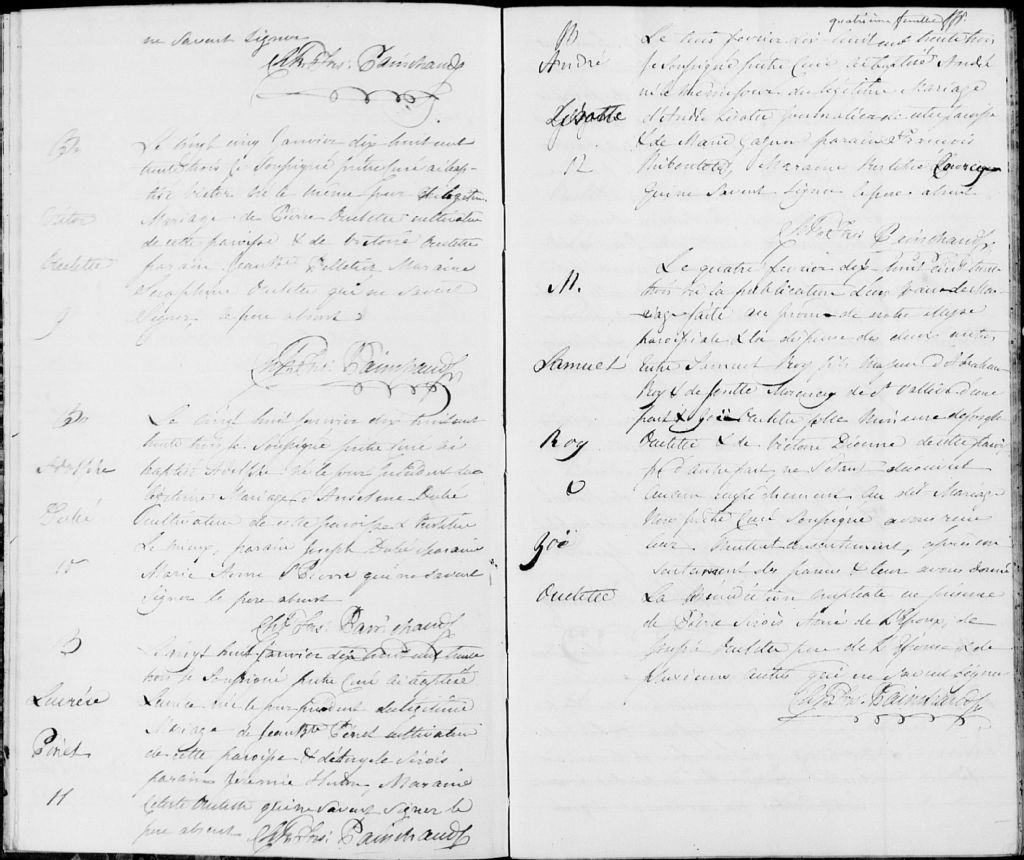 ne savent signer
Chs Frs: Painchaud
B
Victor
Ouelette
9
Le vingt cinq Janvier dix huit cent
trente trois Je Soussigné prêtre Curé ai bap-
tisé Victor né le même jour du legitime
Mariage de Pierre Ouelette cultivateur
de cette paroisse & de Victoire Ouelette
parain Jean Bte Pelletier Maraine
Seraphine Ouelette qui ne savent
Signer, le père absent
Chs Frs: Painchaud
B
Dubé
10
Le vingt huit Janvier dix huit cent
trente trois Je Soussigné prêtre Curé ai
baptisé né le jour précédent du
légitime Mariage d'Anselme Dubé
Cultivateur de cette paroisse &
Le mieux, parain Joseph Dubé Maraine
Marie Anne St Pierre qui ne savent
Signer le père absent
Chs Frs: Painchaud
B
Lucrèce
Pinet
11
Le vingt huit Janvier dix huit cent trente
trois Je Soussigné prêtre Curé ai baptisé
Lucrèce née le jour précédent du légitime
Mariage de Jean Bte Pinet cultivateur
de cette paroisse & d'Angele Sirois
parain Jérémie Hudon, Maraine
Celeste Ouelette qui ne savent Signer le
père absent Chs Frs: Painchaud
quatrième feuillet
B
André
Lizotte
12
Le trois fevrier dix-huit cent trente trois
Je Soussigné prêtre Curé ai baptisé André
né le même jour du légitime Mariage
d'André Lizotte Journalier de cette paroisse
& de Maud Gagnon parain François
Thiboutot, Maraine
qui ne savent signer le père absent
Chs Frs: Painchaud
M.
Samuel
Roy
&
Zoé
Ouelette
Le quatre fevrier dix-huit cent trente
trois vu la publication d'un ban de Ma-
riage faite au prone de notre Messe
paroissiale & la dispense des deux autres
entre Samuel Roy fils Majeur d'Abraham
Roy & de Morency de St Vallier d'une
part & Zoé Ouelette fille Mineure de Joseph
Ouelette & de Victoire Dionne de cette parois-
se d'autre part ne s'étant découvert
Aucun empêchement au dit Mariage
Nous prêtre Curé Soussigné avons reçu
leur Mutuel consentement, après con-
sentement des parens & leur avons donné
La bénédiction nuptiale en présence
de Sirois Ami de L'Epoux, de
Joseph Ouelette père de L'Epouse & de
plusieurs autres qui ne savent Signer
Chs Frs: Painchaud